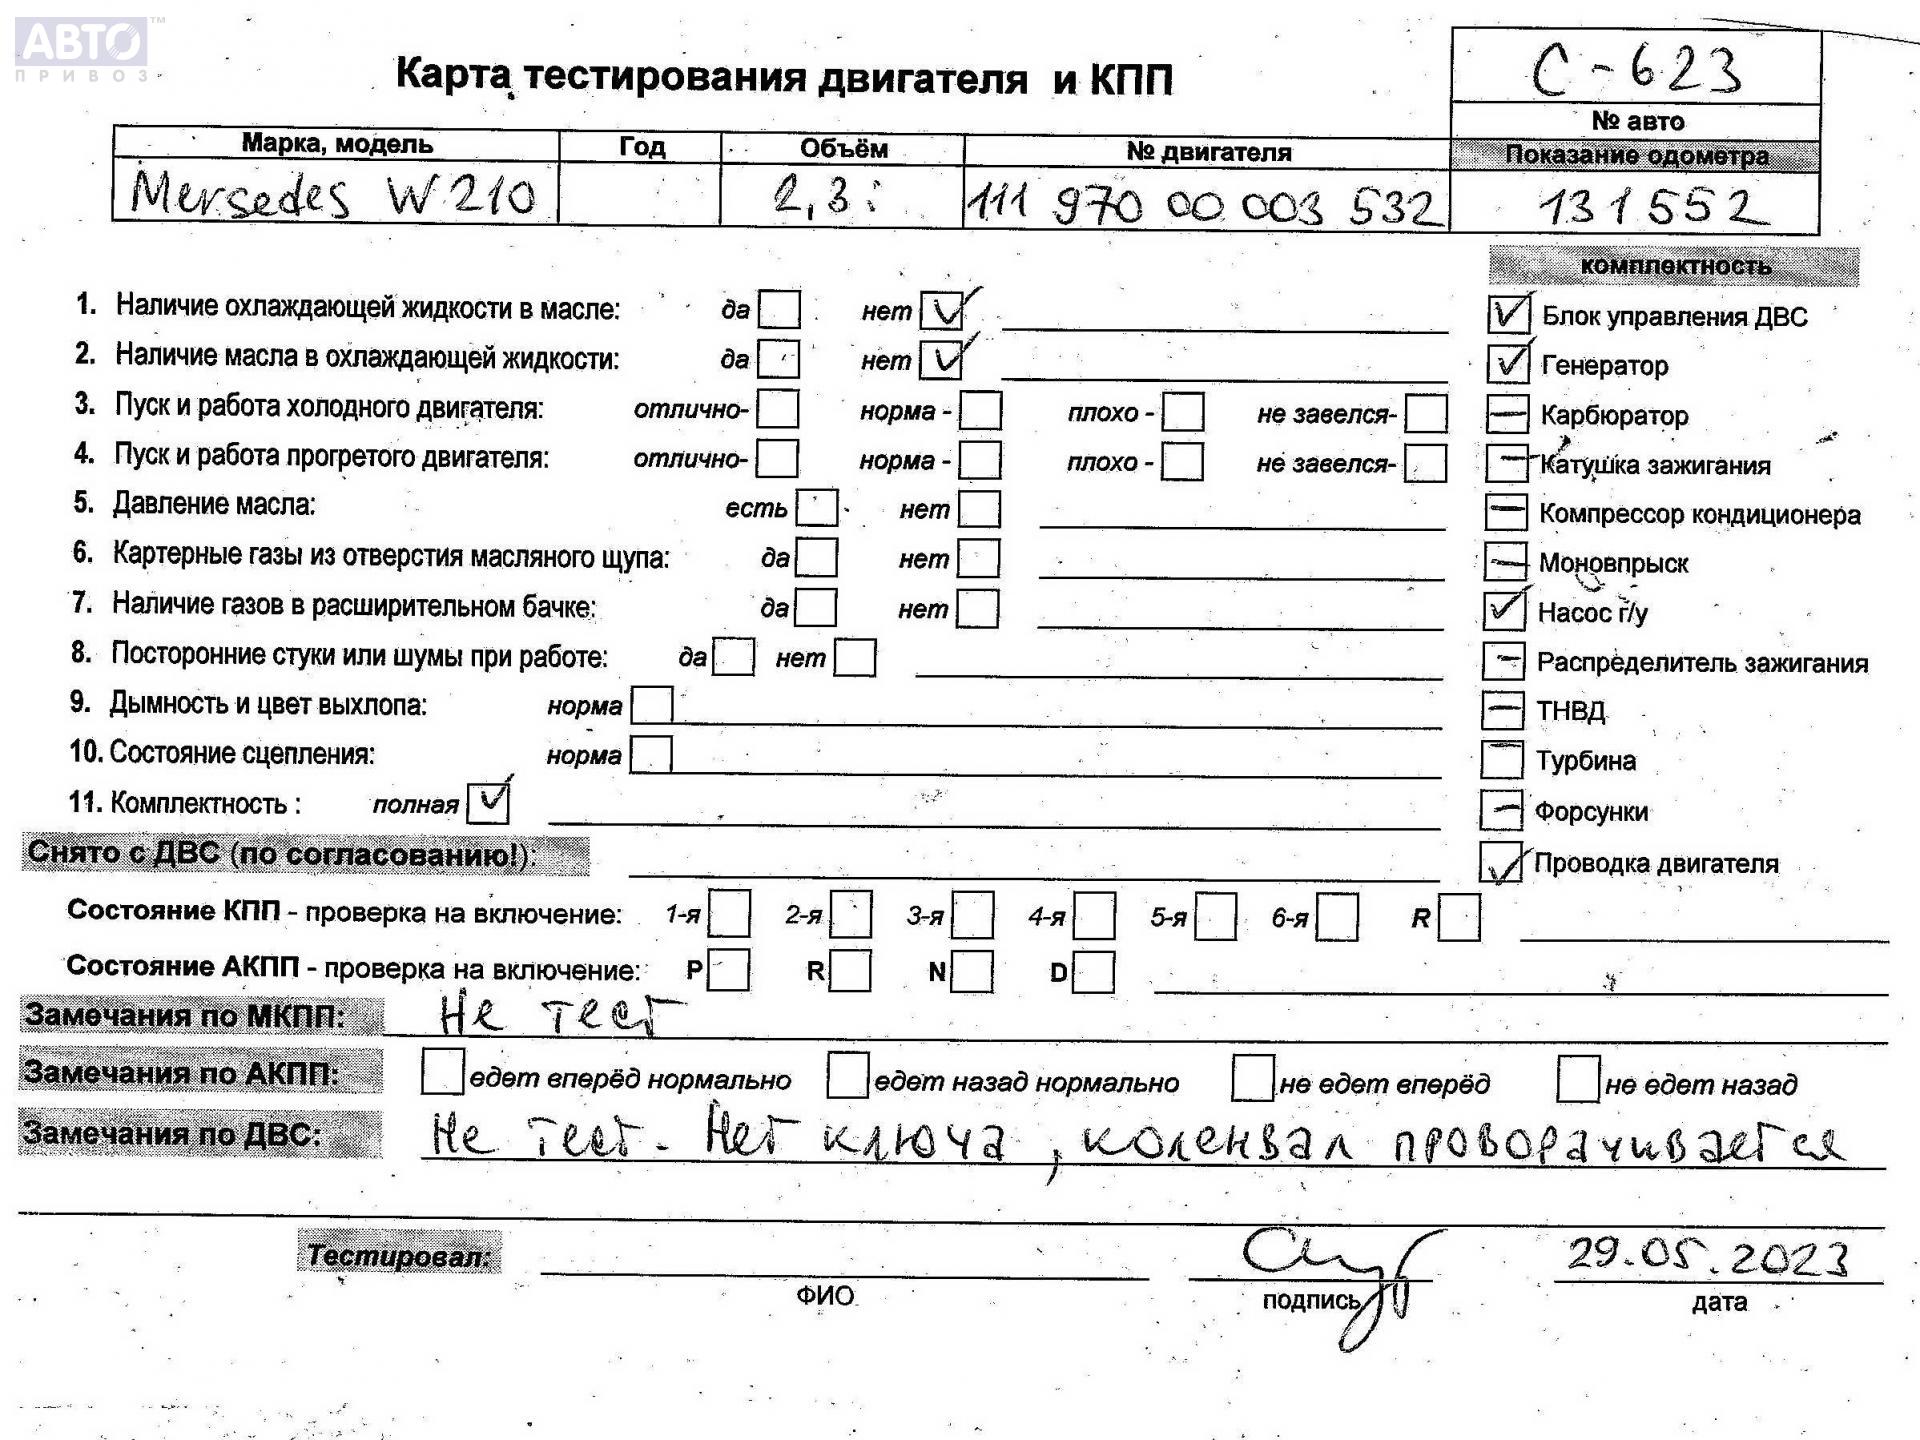 АВТО™
ПРИВОЗ
Карта тестирования двигателя и КПП
С-623
№ авто
Марка, модель Год Объём № двигателя Показание одометра
Mersedes W210 2,3i 111 970 00 003 532 131552
комплектность
1. Наличие охлаждающей жидкости в масле: да нет ✓
Блок управления ДВС ✓
2. Наличие масла в охлаждающей жидкости: да нет ✓
Генератор ✓
3. Пуск и работа холодного двигателя: отлично- норма - плохо - не завелся-
— Карбюратор
4. Пуск и работа прогретого двигателя: отлично- норма - плохо - не завелся-
— Катушка зажигания
5. Давление масла: есть нет
— Компрессор кондиционера
6. Картерные газы из отверстия масляного щупа: да нет
— Моновпрыск
7. Наличие газов в расширительном бачке: да нет
✓ Насос г/у
8. Посторонние стуки или шумы при работе: да нет
— Распределитель зажигания
9. Дымность и цвет выхлопа: норма
— ТНВД
10. Состояние сцепления: норма
— Турбина
11. Комплектность : полная ✓
— Форсунки
Снято с ДВС (по согласованию!):
✓ Проводка двигателя
Состояние КПП - проверка на включение: 1-я 2-я 3-я 4-я 5-я 6-я R
Состояние АКПП - проверка на включение: P R N D
Замечания по МКПП: Не тест
Замечания по АКПП: едет вперёд нормально едет назад нормально не едет вперёд не едет назад
Замечания по ДВС: Не тест. Нет ключа, коленвал проворачивается
Тестировал: 29.05.2023
ФИО подпись дата